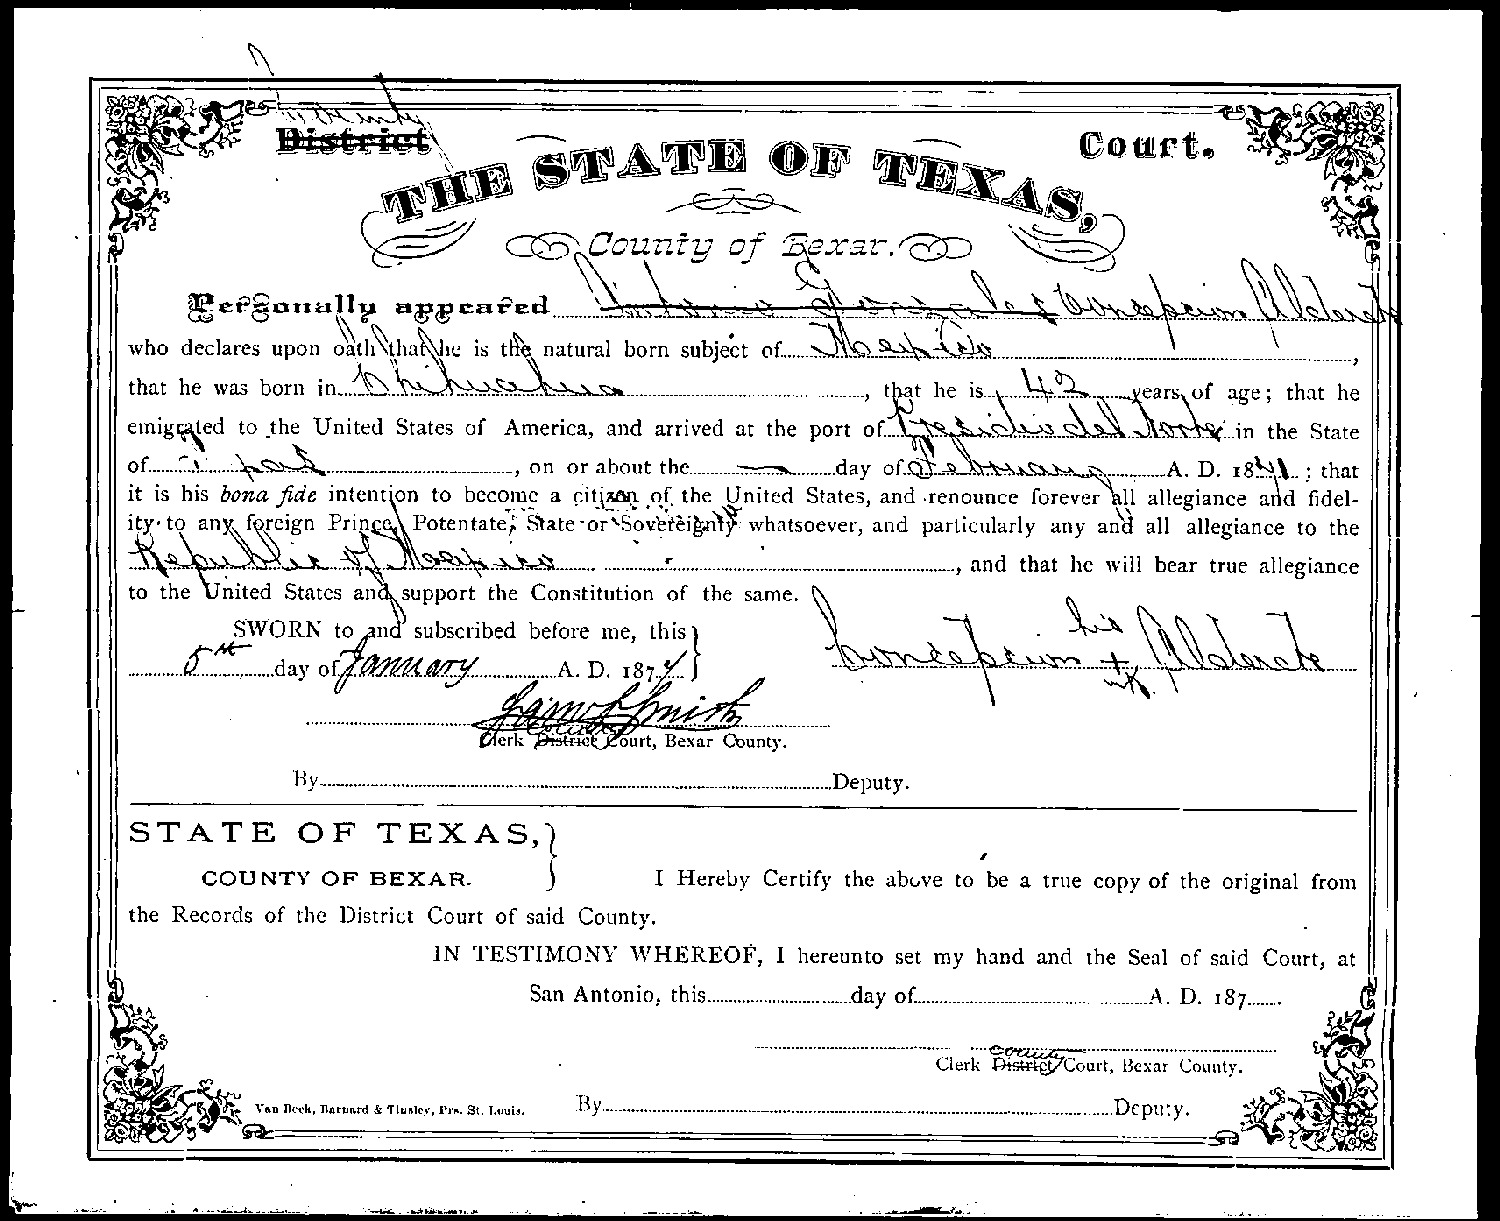 County
District Court.
THE STATE OF TEXAS,
County of Bexar.
Personally appeared Antonio Gonzales Concepcion Alderete
who declares upon oath that he is the natural born subject of Mexico,
that he was born in Chihuahua, that he is 42 years of age; that he
emigrated to the United States of America, and arrived at the port of Presidio del Norte in the State
of Texas, on or about the — day of February A. D. 1841; that
it is his bona fide intention to become a citizen of the United States, and renounce forever all allegiance and fidel-
ity to any foreign Prince, Potentate, State or Sovereignty whatsoever, and particularly any and all allegiance to the
Republic of Mexico, and that he will bear true allegiance
to the United States and support the Constitution of the same.
SWORN to and subscribed before me, this
5th day of January A. D. 1874
Concepcion his + mk Alderete
Sam S Smith
County
Clerk District Court, Bexar County.
By Deputy.
STATE OF TEXAS,
COUNTY OF BEXAR.
I Hereby Certify the above to be a true copy of the original from
the Records of the District Court of said County.
IN TESTIMONY WHEREOF, I hereunto set my hand and the Seal of said Court, at
San Antonio, this day of A. D. 187
County
Clerk District Court, Bexar County.
Van Beek, Barnard & Tinsley, Prs. St. Louis.
By Deputy.